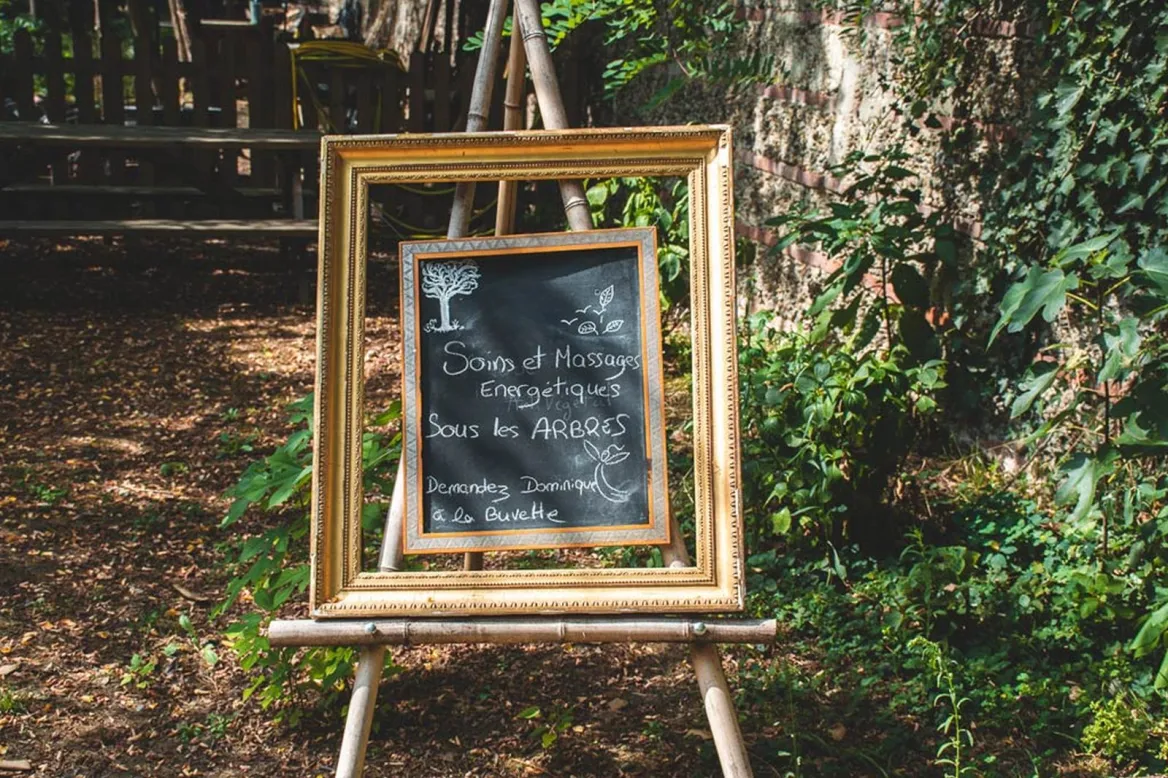 Soins et Massages
Energétiques
Sous les ARBRES
Demandez Dominique
à la Buvette